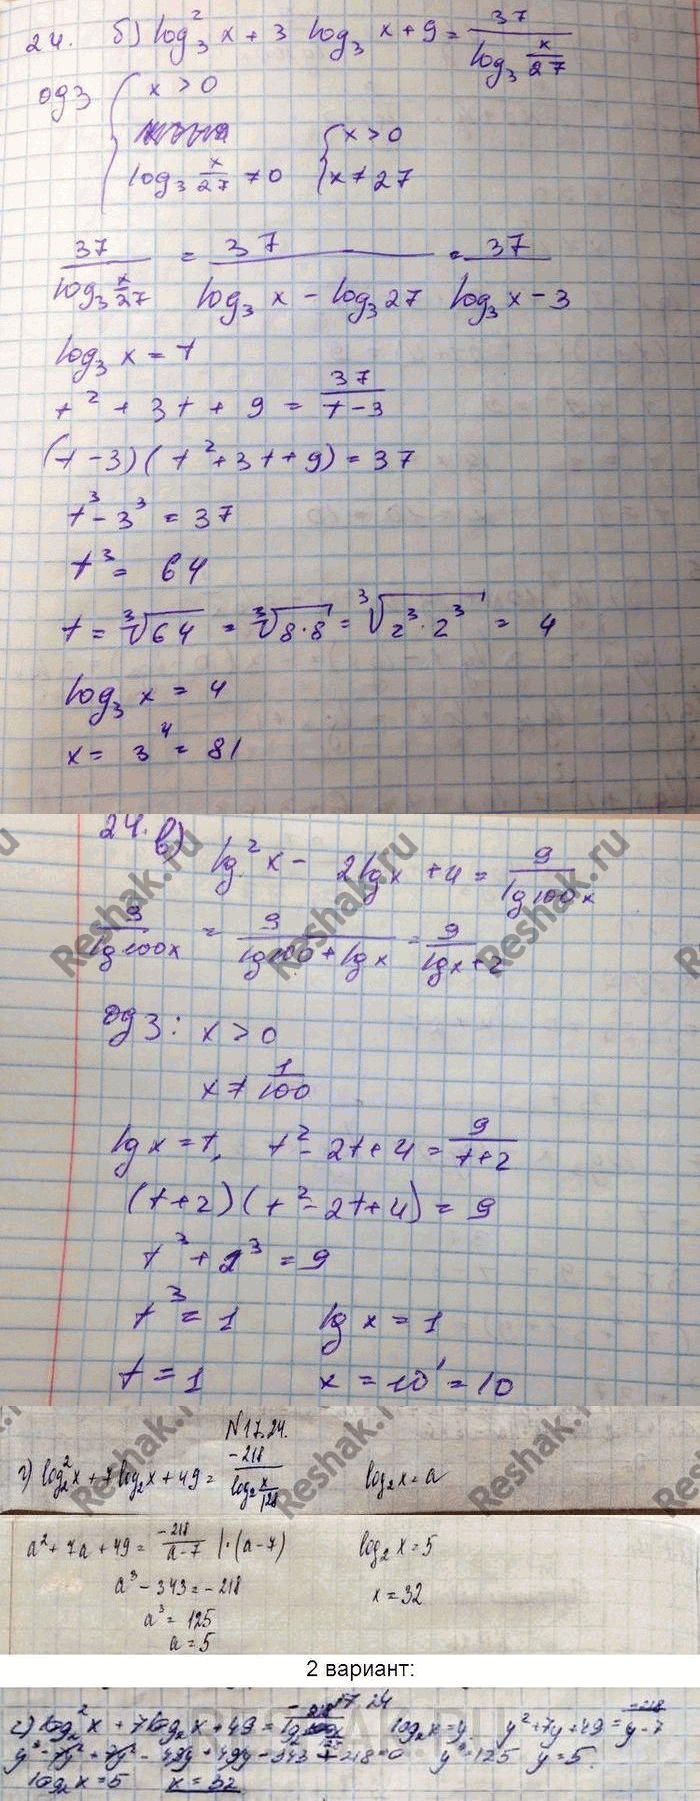 24. б) log₃² x + 3 log₃ x + 9 = 37 / log₃ x/27
ОДЗ { x > 0
log₃ x/27 ≠ 0 { x > 0
x ≠ 27
37 / log₃ x/27 = 37 / log₃ x − log₃ 27 = 37 / log₃ x − 3
log₃ x = t
t² + 3t + 9 = 37 / t − 3
(t − 3)(t² + 3t + 9) = 37
t³ − 3³ = 37
t³ = 64
t = ∛64 = ∛8·8 = ∛2³·2³ = 4
log₃ x = 4
x = 3⁴ = 81
24. в)
lg² x − 2lgx + 4 = 9 / lg100x
9 / lg100x = 9 / lg100 + lgx = 9 / lgx + 2
ОДЗ: x > 0
x ≠ 1/100
lgx = t, t² − 2t + 4 = 9 / t + 2
(t + 2)(t² − 2t + 4) = 9
t³ + 2³ = 9
t³ = 1 lg x = 1
t = 1 x = 10¹ = 10
Reshak.ru
Reshak.ru
Reshak.ru
N17.24.
г) log₂² x + 7 log₂ x + 49 = −218 / log₂ x/128 log₂ x = a
a² + 7a + 49 = −218 / a − 7 | · (a − 7) log₂ x = 5
a³ − 343 = −218 x = 32
a³ = 125
a = 5
2 вариант:
17 24
г) log₂² x + 7log₂ x + 49 = log₂x = y y² + 7y + 49 = −218 / y − 7
y³ − 7y² + 7y² − 49y + 49y − 343 + 218 = 0 y³ = 125 y = 5.
log₂ x = 5 x = 32